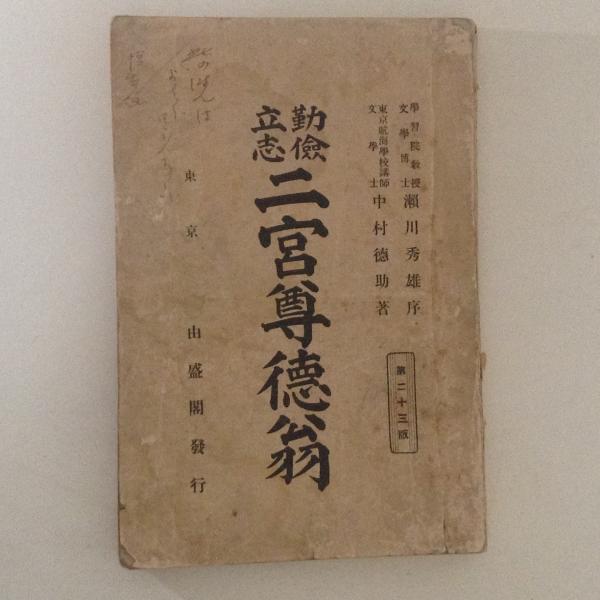 學習院教授
文學博士
瀬川秀雄序
東京航海學校講師
文學士
中村德助著
第二十三版
勤儉
立志
二宮尊德翁
東京 由盛閣發行